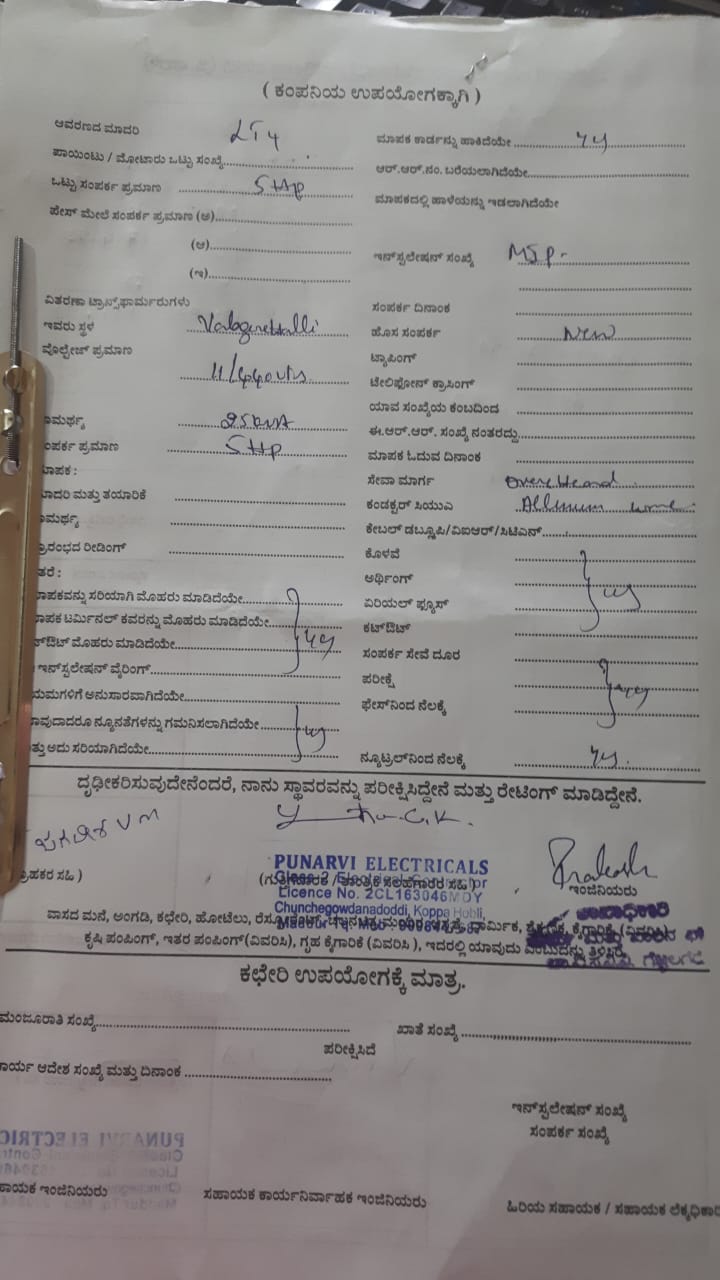 ( ಕಂಪನಿಯ ಉಪಯೋಗಕ್ಕಾಗಿ )
ಆವರಣದ ಮಾದರಿ LT4
ಪಾಯಿಂಟು / ಮೋಟಾರು ಒಟ್ಟು ಸಂಖ್ಯೆ
ಒಟ್ಟು ಸಂಪರ್ಕ ಪ್ರಮಾಣ 5Hp
ಫೇಸ್ ಮೇಲೆ ಸಂಪರ್ಕ ಪ್ರಮಾಣ (ಅ)
(ಆ)
(ಇ)
ವಿತರಣಾ ಟ್ರಾನ್ಸ್‌ಫಾರ್ಮರುಗಳು
ಇವರು ಸ್ಥಳ
ವೊಲ್ಟೇಜ್ ಪ್ರಮಾಣ
11/440vts
ಾಮರ್ಥ್ಯ 25kVA
ಂಪರ್ಕ ಪ್ರಮಾಣ 5Hp
ಾಪಕ :
ಾದರಿ ಮತ್ತು ತಯಾರಿಕೆ
ಾಮರ್ಥ್ಯ
್ರಾರಂಭದ ರೀಡಿಂಗ್
ತರೆ :
ಾಪಕವನ್ನು ಸರಿಯಾಗಿ ಮೊಹರು ಮಾಡಿದೆಯೇ
ಾಪಕ ಟರ್ಮಿನಲ್ ಕವರನ್ನು ಮೊಹರು ಮಾಡಿದೆಯೇ
ಟ್‌ಔಟ್ ಮೊಹರು ಮಾಡಿದೆಯೇ yes
ಇನ್‌ಸ್ಟಲೇಷನ್ ವೈರಿಂಗ್
ಯಮಗಳಿಗೆ ಅನುಸಾರವಾಗಿದೆಯೇ
ಾವುದಾದರೂ ನ್ಯೂನತೆಗಳನ್ನು ಗಮನಿಸಲಾಗಿದೆಯೇ yes
ತ್ತು ಅದು ಸರಿಯಾಗಿದೆಯೇ
ಮಾಪಕ ಕಾರ್ಡನ್ನು ಹಾಕಿದೆಯೇ yes
ಆರ್.ಆರ್.ನಂ. ಬರೆಯಲಾಗಿದೆಯೇ
ಮಾಪಕದಲ್ಲಿ ಹಾಳೆಯನ್ನು ಇಡಲಾಗಿದೆಯೇ
ಇನ್‌ಸ್ಟಲೇಷನ್ ಸಂಖ್ಯೆ MSP-
ಸಂಪರ್ಕ ದಿನಾಂಕ
ಹೊಸ ಸಂಪರ್ಕ New
ಟ್ಯಾಪಿಂಗ್
ಟೇಲಿಫೋನ್ ಕ್ರಾಸಿಂಗ್
ಯಾವ ಸಂಖ್ಯೆಯ ಕಂಬದಿಂದ
ಈ.ಆರ್.ಆರ್. ಸಂಖ್ಯೆ ನಂತರದ್ದು
ಮಾಪಕ ಓದುವ ದಿನಾಂಕ
ಸೇವಾ ಮಾರ್ಗ
ಕಂಡಕ್ಟರ್ ಸಿಯುಎ
ಕೇಬಲ್ ಡಬ್ಲ್ಯೂಪಿ/ವಿಐಆರ್/ಸಿಟಿಎನ್
ಕೊಳವೆ
ಅರ್ಥಿಂಗ್
ಏರಿಯಲ್ ಫ್ಯೂಸ್ yes
ಕಟ್‌ಔಟ್
ಸಂಪರ್ಕ ಸೇವೆ ದೂರ
ಪರೀಕ್ಷೆ yes
ಫೇಸ್‌ನಿಂದ ನೆಲಕ್ಕೆ
ನ್ಯೂಟ್ರಲ್‌ನಿಂದ ನೆಲಕ್ಕೆ yes
ದೃಢೀಕರಿಸುವುದೇನೆಂದರೆ, ನಾನು ಸ್ಥಾವರವನ್ನು ಪರೀಕ್ಷಿಸಿದ್ದೇನೆ ಮತ್ತು ರೇಟಿಂಗ್ ಮಾಡಿದ್ದೇನೆ.
Prakash
PUNARVI ELECTRICALS
Licence No. 2CL163046MDY
Chunchegowdanadoddi, Koppa Hobli,
್ರಾಹಕರ ಸಹಿ )
ಇಂಜಿನಿಯರು
ವಾಸದ ಮನೆ, ಅಂಗಡಿ, ಕಛೇರಿ, ಹೋಟೆಲು,
ಕೃಷಿ ಪಂಪಿಂಗ್, ಇತರ ಪಂಪಿಂಗ್(ವಿವರಿಸಿ), ಗೃಹ ಕೈಗಾರಿಕೆ (ವಿವರಿಸಿ ), ಇದರಲ್ಲಿ ಯಾವುದು ಎಂಬುದನ್ನು ತಿಳಿಸಿರಿ
ಕಛೇರಿ ಉಪಯೋಗಕ್ಕೆ ಮಾತ್ರ.
ಮಂಜೂರಾತಿ ಸಂಖ್ಯೆ ಖಾತೆ ಸಂಖ್ಯೆ
ಪರೀಕ್ಷಿಸಿದೆ
ಾರ್ಯ ಆದೇಶ ಸಂಖ್ಯೆ ಮತ್ತು ದಿನಾಂಕ
ಇನ್‌ಸ್ಟಲೇಷನ್ ಸಂಖ್ಯೆ
ಸಂಪರ್ಕ ಸಂಖ್ಯೆ
ಹಾಯಕ ಇಂಜಿನಿಯರು ಸಹಾಯಕ ಕಾರ್ಯನಿರ್ವಾಹಕ ಇಂಜಿನಿಯರು ಹಿರಿಯ ಸಹಾಯಕ / ಸಹಾಯಕ ಲೆಕ್ಕಧಿಕಾರಿ